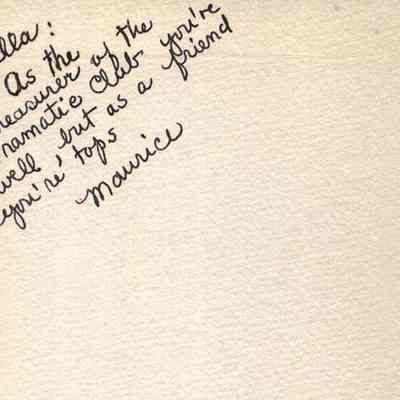 lla:
As the
reasurer of the
ramatic Club you're
well but as a friend
you're' tops
Maurice